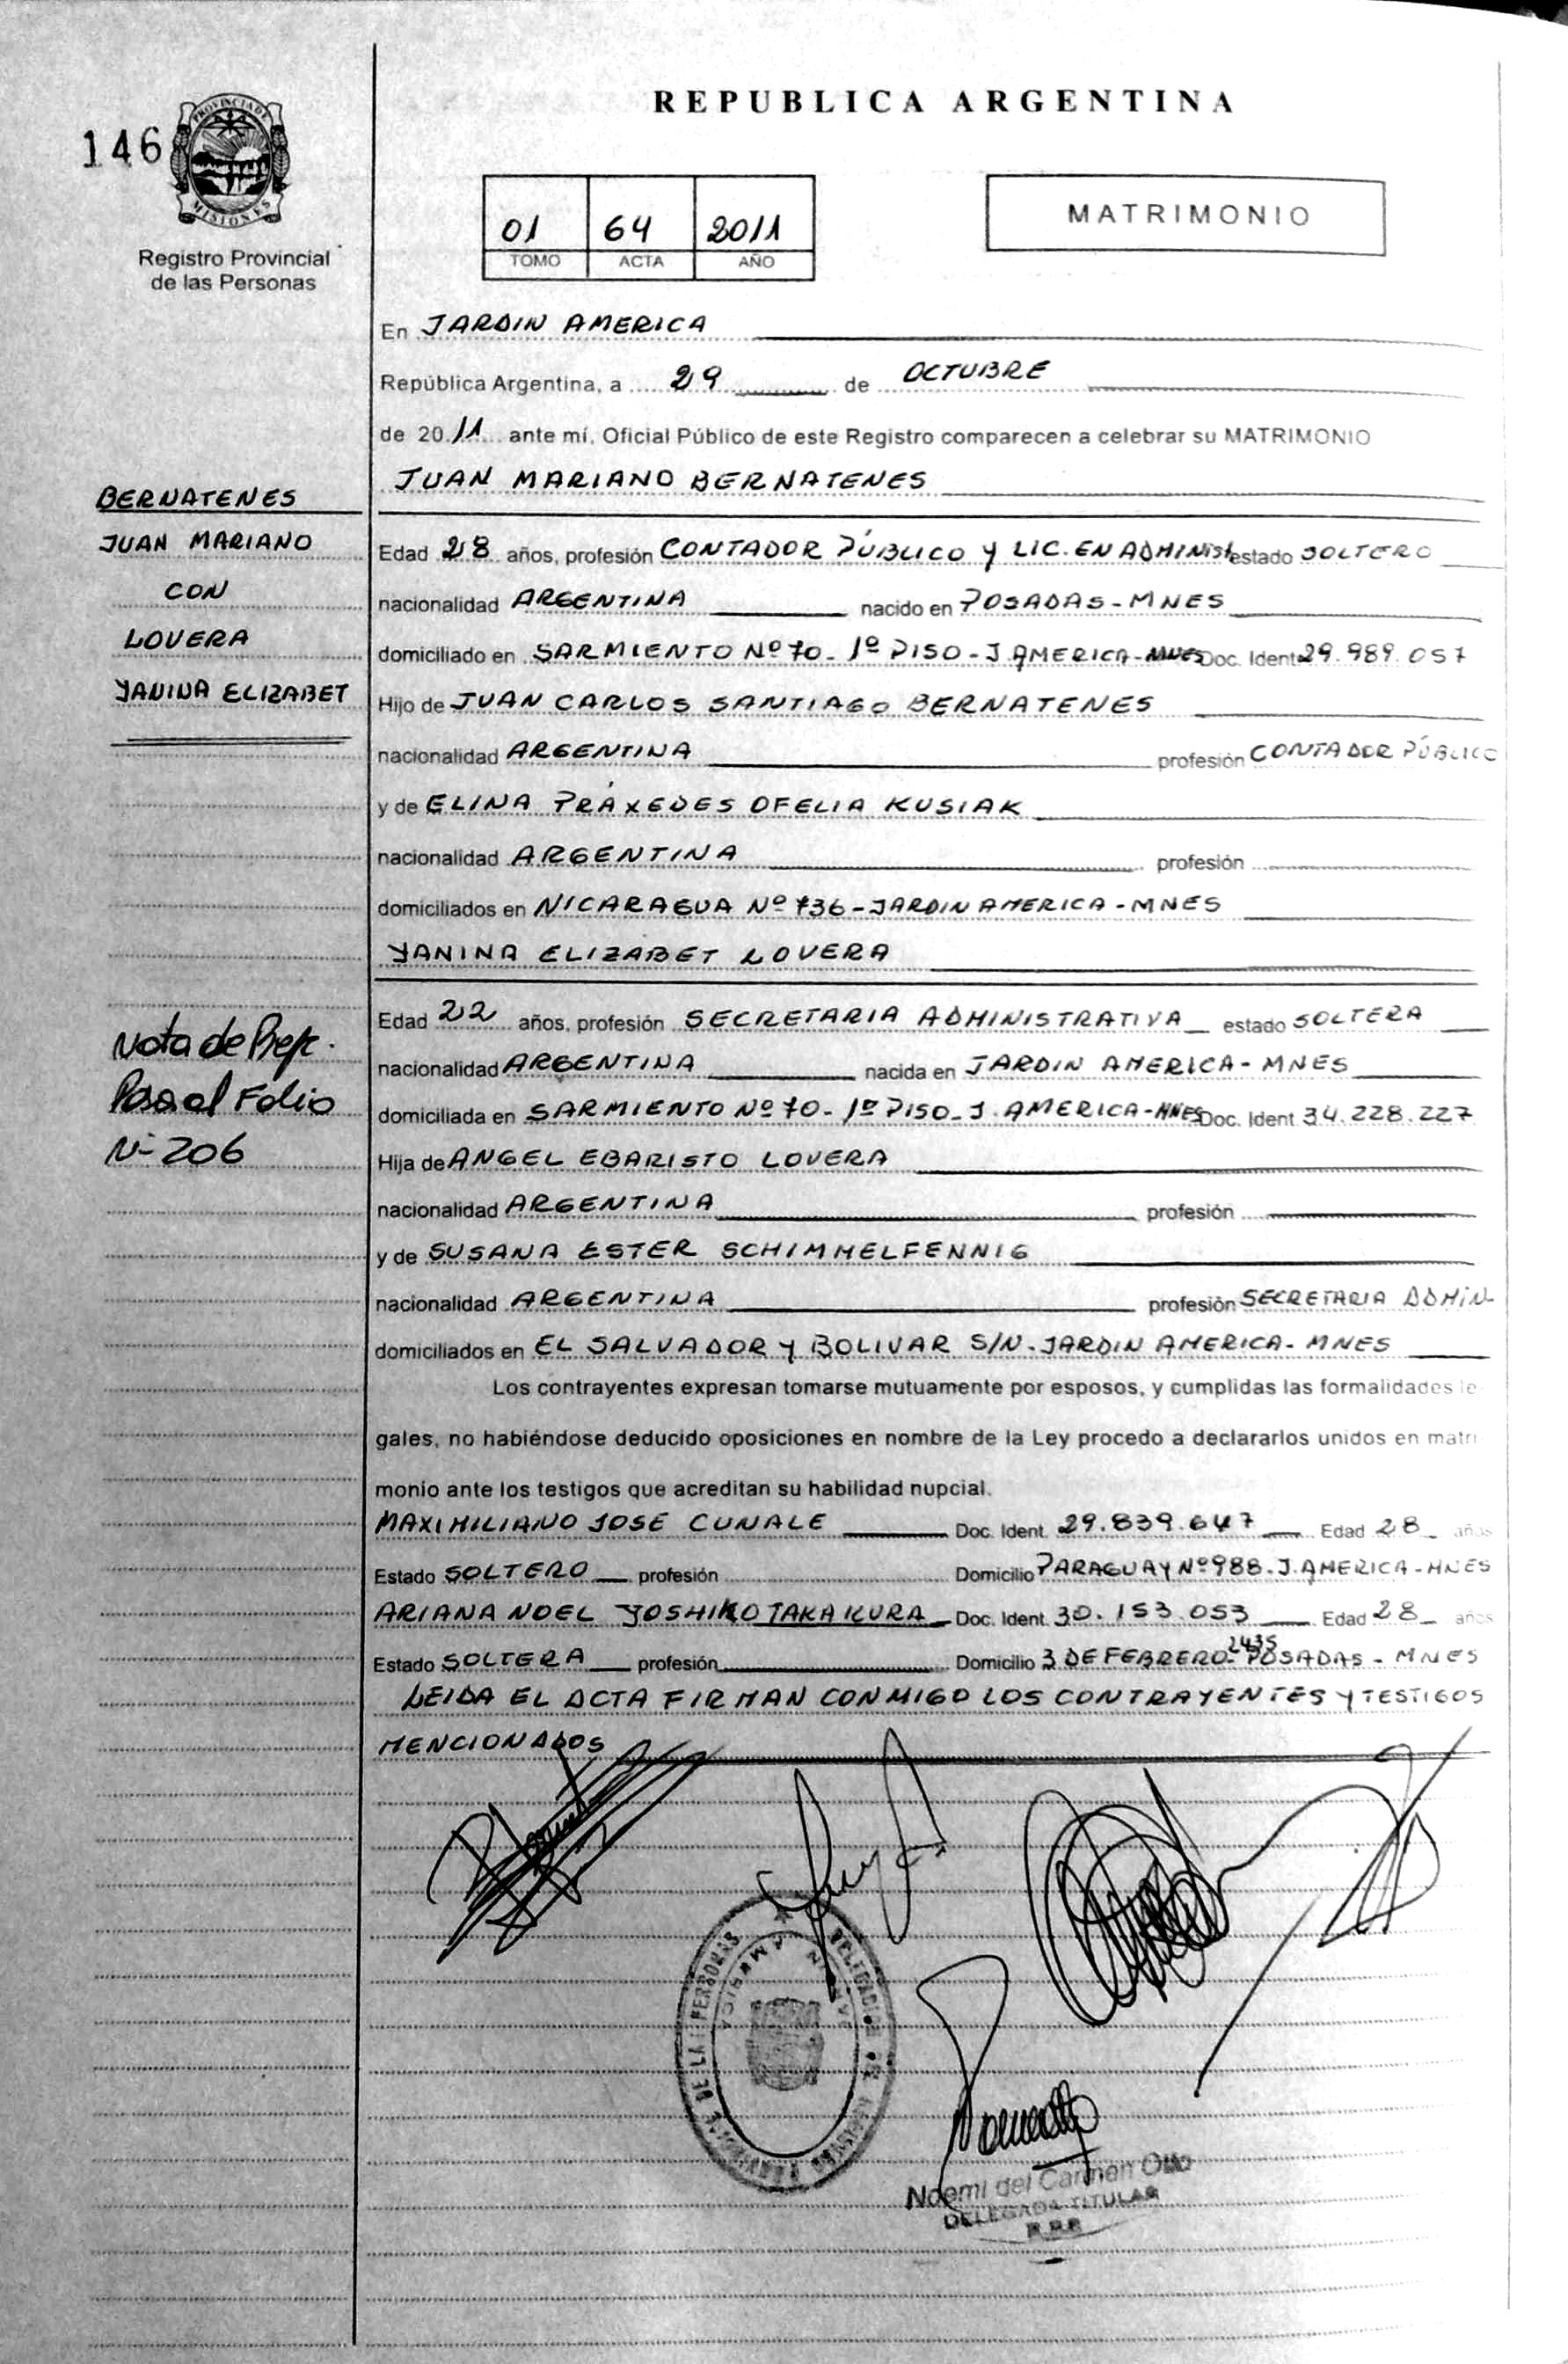 REPUBLICA ARGENTINA
146
PROVINCIA DE
MISIONES
Registro Provincial
de las Personas
01 64 2011
TOMO ACTA AÑO
MATRIMONIO
En JARDIN AMERICA
República Argentina, a 29 de OCTUBRE
de 2011 ante mí, Oficial Público de este Registro comparecen a celebrar su MATRIMONIO
JUAN MARIANO BERNATENES
BERNATENES
JUAN MARIANO
CON
LOVERA
YANINA ELIZABET
Edad 28 años, profesión CONTADOR PÚBLICO Y LIC. EN ADMINIST estado SOLTERO
nacionalidad ARGENTINA nacido en POSADAS-MNES
domiciliado en SARMIENTO Nº 70- 1º PISO-J AMERICA-MNES Doc. Ident 29.989.057
Hijo de JUAN CARLOS SANTIAGO BERNATENES
nacionalidad ARGENTINA profesión CONTADOR PÚBLICO
y de ELINA PRÁXEDES OFELIA KUSIAK
nacionalidad ARGENTINA profesión
domiciliados en NICARAGUA Nº 736-JARDIN AMERICA-MNES
YANINA ELIZABET LOVERA
Edad 22 años, profesión SECRETARIA ADMINISTRATIVA estado SOLTERA
nacionalidad ARGENTINA nacida en JARDIN AMERICA-MNES
domiciliada en SARMIENTO Nº 70- 1º PISO-J. AMERICA-MNES Doc. Ident 34.228.227
Hija de ANGEL EBARISTO LOVERA
nacionalidad ARGENTINA profesión
y de SUSANA ESTER SCHIMMELFENNIG
nacionalidad ARGENTINA profesión SECRETARIA ADMIN
domiciliados en EL SALVADOR Y BOLIVAR S/N-JARDIN AMERICA-MNES
Nota de Ref.
Pasa al Folio
Nº 206
Los contrayentes expresan tomarse mutuamente por esposos, y cumplidas las formalidades le
gales, no habiéndose deducido oposiciones en nombre de la Ley procedo a declararlos unidos en matri
monio ante los testigos que acreditan su habilidad nupcial.
MAXIMILIANO JOSE CUNALE Doc. Ident. 29.839.647 Edad 28 años
Estado SOLTERO profesión Domicilio PARAGUAY Nº 988-J.AMERICA-MNES
ARIANA NOEL YOSHIKO TAKAKURA Doc. Ident. 30.153.053 Edad 28 años
Estado SOLTERA profesión Domicilio 3 DE FEBRERO 2435-POSADAS-MNES
LEIDA EL ACTA FIRMAN CONMIGO LOS CONTRAYENTES Y TESTIGOS
MENCIONADOS
DE LAS PERSONAS
DELEGACION
JARDIN AMERICA
Noemi del Carmen
DELEGADA TITULAR
R.P.P.